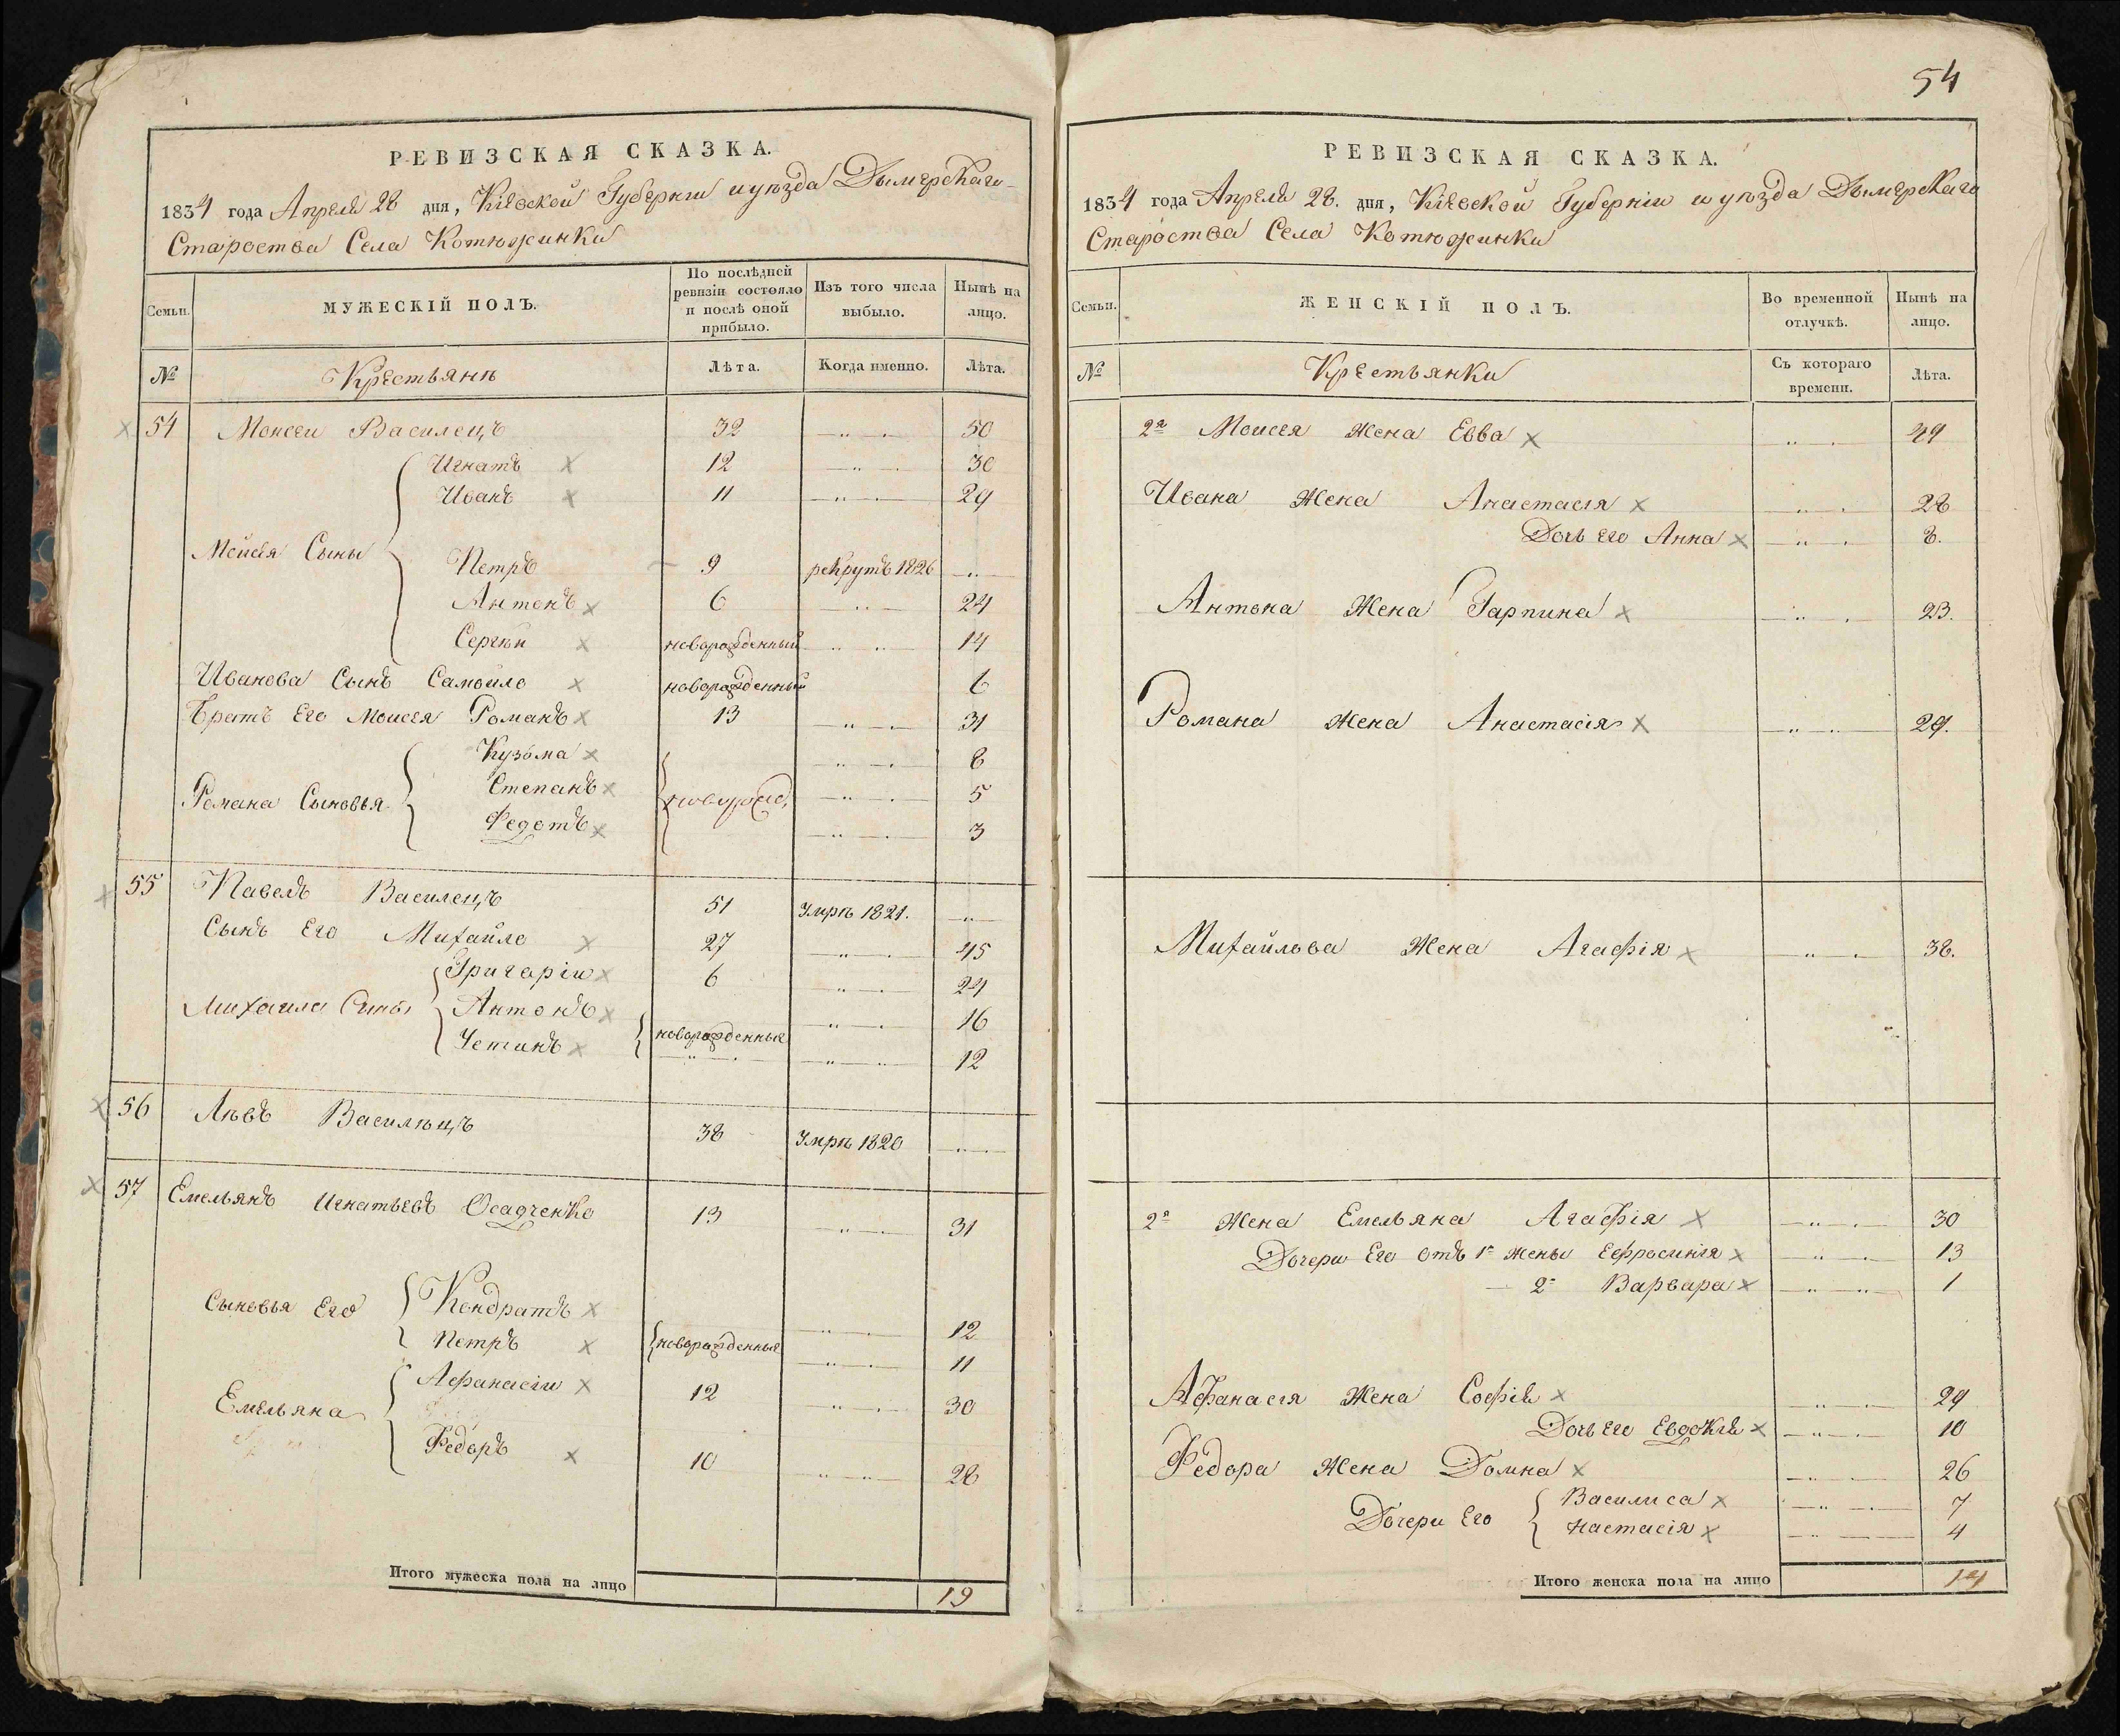 РЕВИЗСКАЯ СКАЗКА.
1834 года Апреля 28 дня, Кіевской Губерніи и уѣзда Дымерскаго
Староства Села Котюжинки
Семьи.
МУЖЕСКІЙ ПОЛЪ.
По послѣдней ревизіи состояло и послѣ оной прибыло.
Изъ того числа выбыло.
Нынѣ на лицо.
№
Крестьянѣ
Лѣта.
Когда именно.
Лѣта.
54 Моисеи Василецъ 32 50
Игнатъ 12 30
Иванъ 11 29
Моисея Сыны
Петръ 9 рекрутъ 1826
Антонъ 6 24
Сергѣи новорожденный 14
Иванова Сынъ Самойло новорожденный 6
Братъ Его Моисея Романъ 13 31
Кузьма 8
Романа Сыновья Степанъ 5
Федотъ 3
55 Павелъ Василецъ 51 Умре 1821.
Сынъ Его Михайло 27 45
Григоріи 6 24
Михаила Сыны Антонъ новорожденныя 16
Устинъ 12
56 Лѣвъ Василѣцъ 38 Умре 1820
57 Емельянъ Игнатьевъ Осадченко 13 31
Сыновья Его Кондратъ 12
Петръ новорожденныя 11
Афанасіи 12 30
Емельяна
Федоръ 10 28
Итого мужеска пола на лицо 19
54
РЕВИЗСКАЯ СКАЗКА.
1834 года Апреля 28. дня, Кіевской Губерніи и уѣзда Дымерскаго
Староства Села Котюжинки
Семьи.
ЖЕНСКІЙ ПОЛЪ.
Во временной отлучкѣ.
Нынѣ на лицо.
№
Крестьянки
Съ котораго времени.
Лѣта.
2я Моисея Жена Евва 49
Ивана Жена Анастасія 28
Дочь его Анна 8.
Антона Жена Гарпина 23.
Романа Жена Анастасія 29.
Михайлова Жена Агафія 38.
2я Жена Емельяна Агафія 30
Дочери Его отъ 1й жены Ефросинія 13
2й Варвара 1
Афанасія Жена Софія 29
Дочь его Евдокія 10
Федора Жена Домна 26
Дочери Его Василиса 7
Настасія 4
Итого женска пола на лицо 14